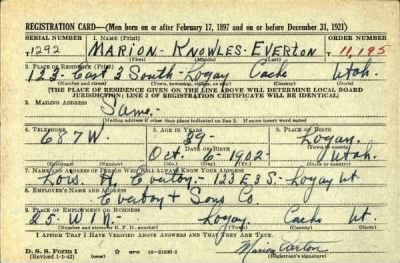 REGISTRATION CARD—(Men born on or after February 17, 1897 and on or before December 31, 1921)
SERIAL NUMBER 1. NAME (Print) ORDER NUMBER
1292 MARION - KNOWLES - EVERTON 11,195
2. PLACE OF RESIDENCE (Print)
123 - East 3 South - Logan Cache Utah.
(Number and street) (Town, township, village, or city) (County) (State)
[THE PLACE OF RESIDENCE GIVEN ON THE LINE ABOVE WILL DETERMINE LOCAL BOARD
JURISDICTION; LINE 2 OF REGISTRATION CERTIFICATE WILL BE IDENTICAL]
3. MAILING ADDRESS
Same -
[Mailing address if other than place indicated on line 2. If same insert word same]
4. TELEPHONE 5. AGE IN YEARS 6. PLACE OF BIRTH
687 W. 39 - Logan
DATE OF BIRTH
Oct. 6 - 1902 - Utah.
7. NAME AND ADDRESS OF PERSON WHO WILL ALWAYS KNOW YOUR ADDRESS
H. Everton - 123 E 3 S. - Logan Ut
8. EMPLOYER'S NAME AND ADDRESS
Everton & Sons Co
9. PLACE OF EMPLOYMENT OR BUSINESS
25. W 1 N - Logan Cache Ut.
(Number and street or R. F. D. number) (Town) (County) (State)
I AFFIRM THAT I HAVE VERIFIED ABOVE ANSWERS AND THAT THEY ARE TRUE.
D. S. S. Form 1
(Revised 1-1-42) (over)
Marion Everton
(Registrant's signature)